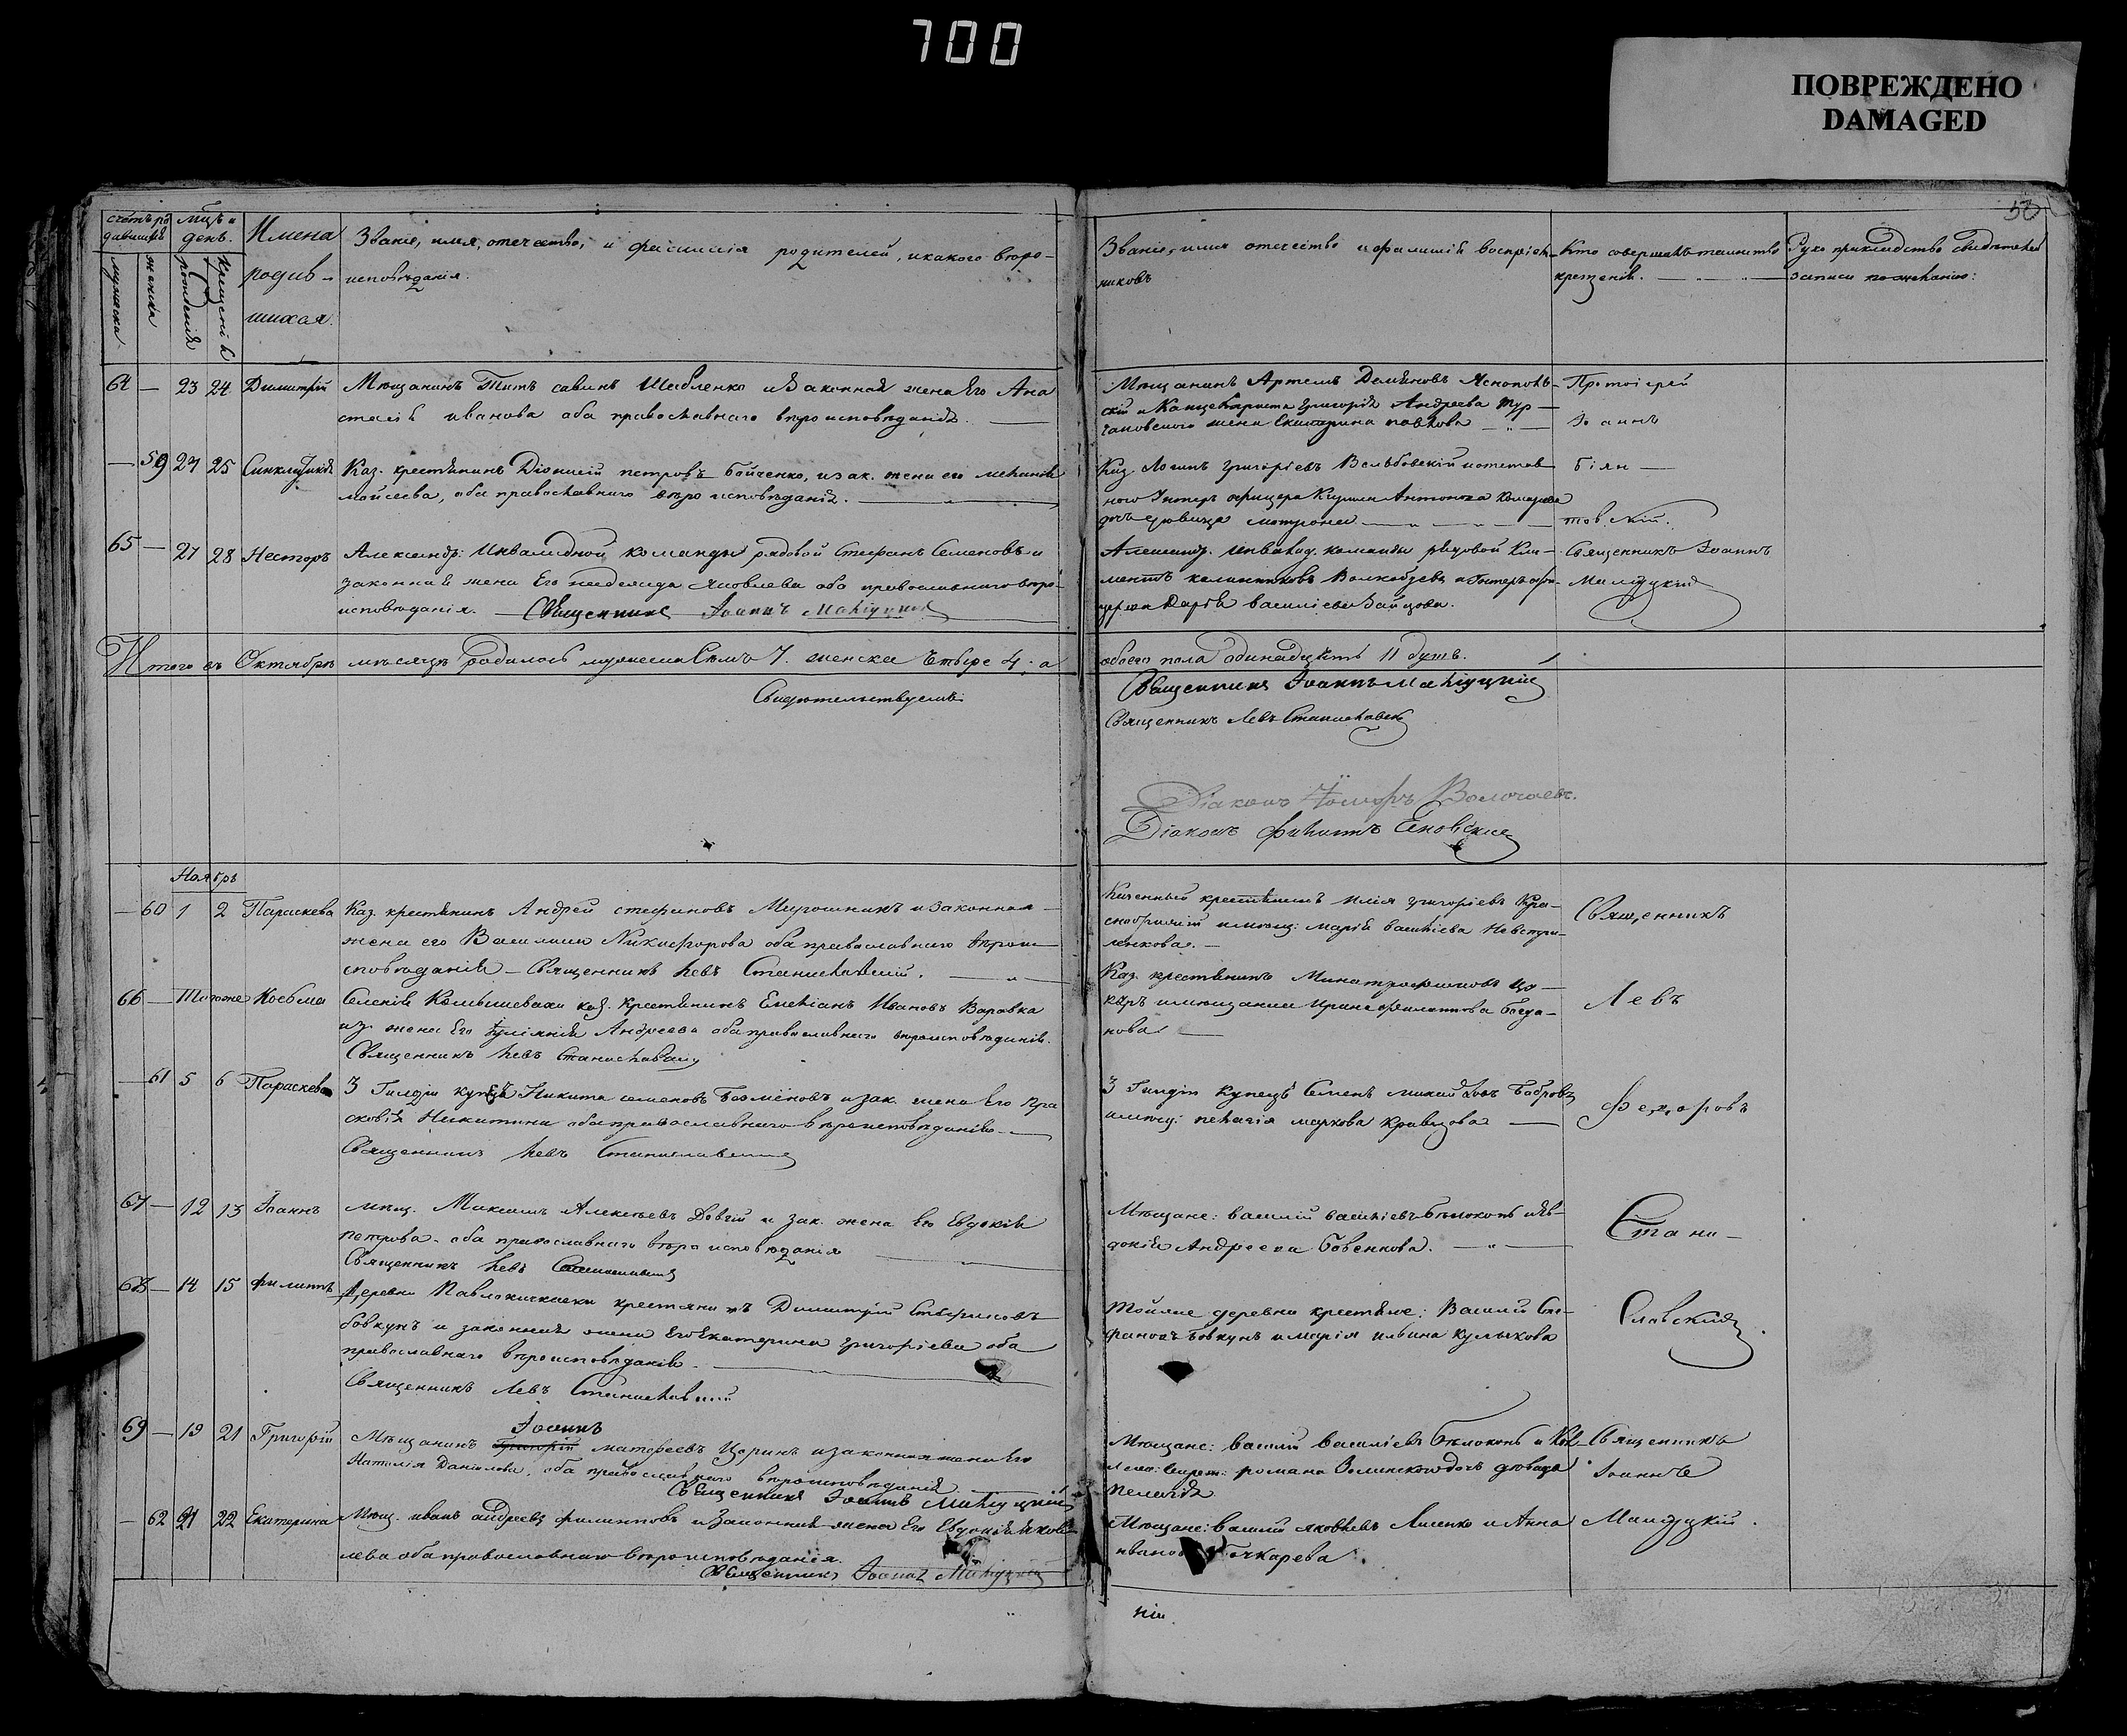 700
ПОВРЕЖДЕНО
DAMAGED
50
счетъ ро
дившихся
мужеска
женска
мцъ и
день.
рожденія
крещенія
Имена
родив-
шихся.
Званіе, имя, отечество, и фамилія родителей, и какого веро-
исповѣданія.
Званіе, имя отечество и фамилія воспріем-
никовъ
Кто совершалъ таинство
крещенія.
Руко прикладство свидѣтелей
записи по желанію:
64 — 23 24 Димитрій
Мѣщанинъ Титъ савинъ Шабленко и законная жена Его Ана
стасія иванова оба православнаго вѣроисповѣданія.
Мѣщанинъ Артемъ Демяновъ Яснополь-
скій и Канцеляриста Григорія Андреева Тур-
чановскаго жена Екатерина
Протоіерей
Іоаннъ
— 59 24 25 Синклитикія
Каз. крестянинъ Діонисій петровъ Бойченко, и зак. жена его меланія
мойсеева, оба православнаго вѣроисповѣданія.
Каз. Логинъ григоріевъ Вельбовскій и отстав-
ного Унтеръ офицера Кирила Антонова Комарова
дочь дѣвица мотрона
Біян —
тов.скій.
65 — 27 28 Несторъ
Александр: Инвалидной команды рядовой Стефанъ Семеновъ и
законная жена Его надежда Яковлева оба православнаго вѣро-
исповѣданія. — Священникъ Іоаннъ Малѣуцкій
Александ. инвалид. команды рядовой Кли-
ментъ калинниковъ и Унтеръ офи-
цера Дарія василіева Зайцова.
Священникъ Іоаннъ
Малѣуцкій
Итого въ Октябрѣ мѣсяцѣ родилось мужеска Семь 7. женска Четыре 4. а
обоего пола одинадцать 11 душъ.
Свидѣтельствуемъ:
Священникъ Іоаннъ Малѣуцкій
Священникъ Левъ Станиславскій
Діаконъ
Діаконъ Филиппъ Еновскій
Ноябрь
— 60 1 2 Параскева
Каз. крестянинъ Андрей стефановъ Мирошникъ и законная
жена его Василиса Никифорова оба православнаго вѣрои-
сповѣданія — Священникъ Левъ Станиславскій.
Казенный крестянинъ илія григоріевъ Кра-
и мѣщ: марія василіева
ленкова.
Священникъ
66 — Тогоже Косьма
Селенія Камышевахи каз. крестянинъ Емеліанъ Ивановъ Варавка
и з. жена Его Андреева оба православнаго вѣроисповѣданія.
Священникъ Левъ Станиславскій
Каз. крестянинъ Мина трофимовъ Цо-
каръ и мѣщанка Ирина филиппова богда-
нова.
Левъ
— 61 5 6 Параскева
3 Гилдіи купецъ Никита семеновъ Безменовъ и зак. жена Его Пра
сковія Никитина оба православнаго вѣроисповѣданія
Священникъ Левъ Станиславскій
3 Гилдіи Купецъ Семенъ михайловъ Бобровъ
и мѣщ: пелагія маркова Кравцова
Федоровъ
67 — 12 13 Іоаннъ
мѣщ. Максимъ Алексѣевъ Довгій и зак. жена Его Евдокія
петрова оба православнаго вѣроисповѣданія
Священникъ Левъ Станиславскій
Мѣщане: василій василіевъ Бѣлоконь и Ев-
докія Андреева Бовенкова.
Стани-
68 — 14 15 Филиппъ
Деревни Павлокичкаски крестянинъ Димитрій Стефановъ
бовкунъ и законная жена Его Екатерина григоріева оба
православнаго вѣроисповѣданія
Священникъ Левъ Станиславскій
Тойже деревни крестяне: Василій Сте-
фановъ Бовкунъ и марія ильина кулькова
Славскій
69 — 19 21 Григорій
Іоаннъ
Мѣщанинъ Григорій матфеевъ Царинъ и законная жена Его
Наталія Данилова, оба православнаго вѣроисповѣданія
Священникъ Іоаннъ Малѣуцкій
Мѣщане: василій василіевъ бѣлоконь и Кол-
секрет: романа дочь дѣвица
Пелагія
Священникъ
Іоаннъ
— 62 21 22 Екатерина
Мѣщ. иванъ андреевъ филипповъ и законная жена Его Евдокія Яков-
лева оба православнаго вѣроисповѣданія.
Священникъ Іоаннъ Малѣуцкій
Мѣщане: василій яковлевъ Лисенко и Анна
иванова Бочкарева
Малѣуцкій.